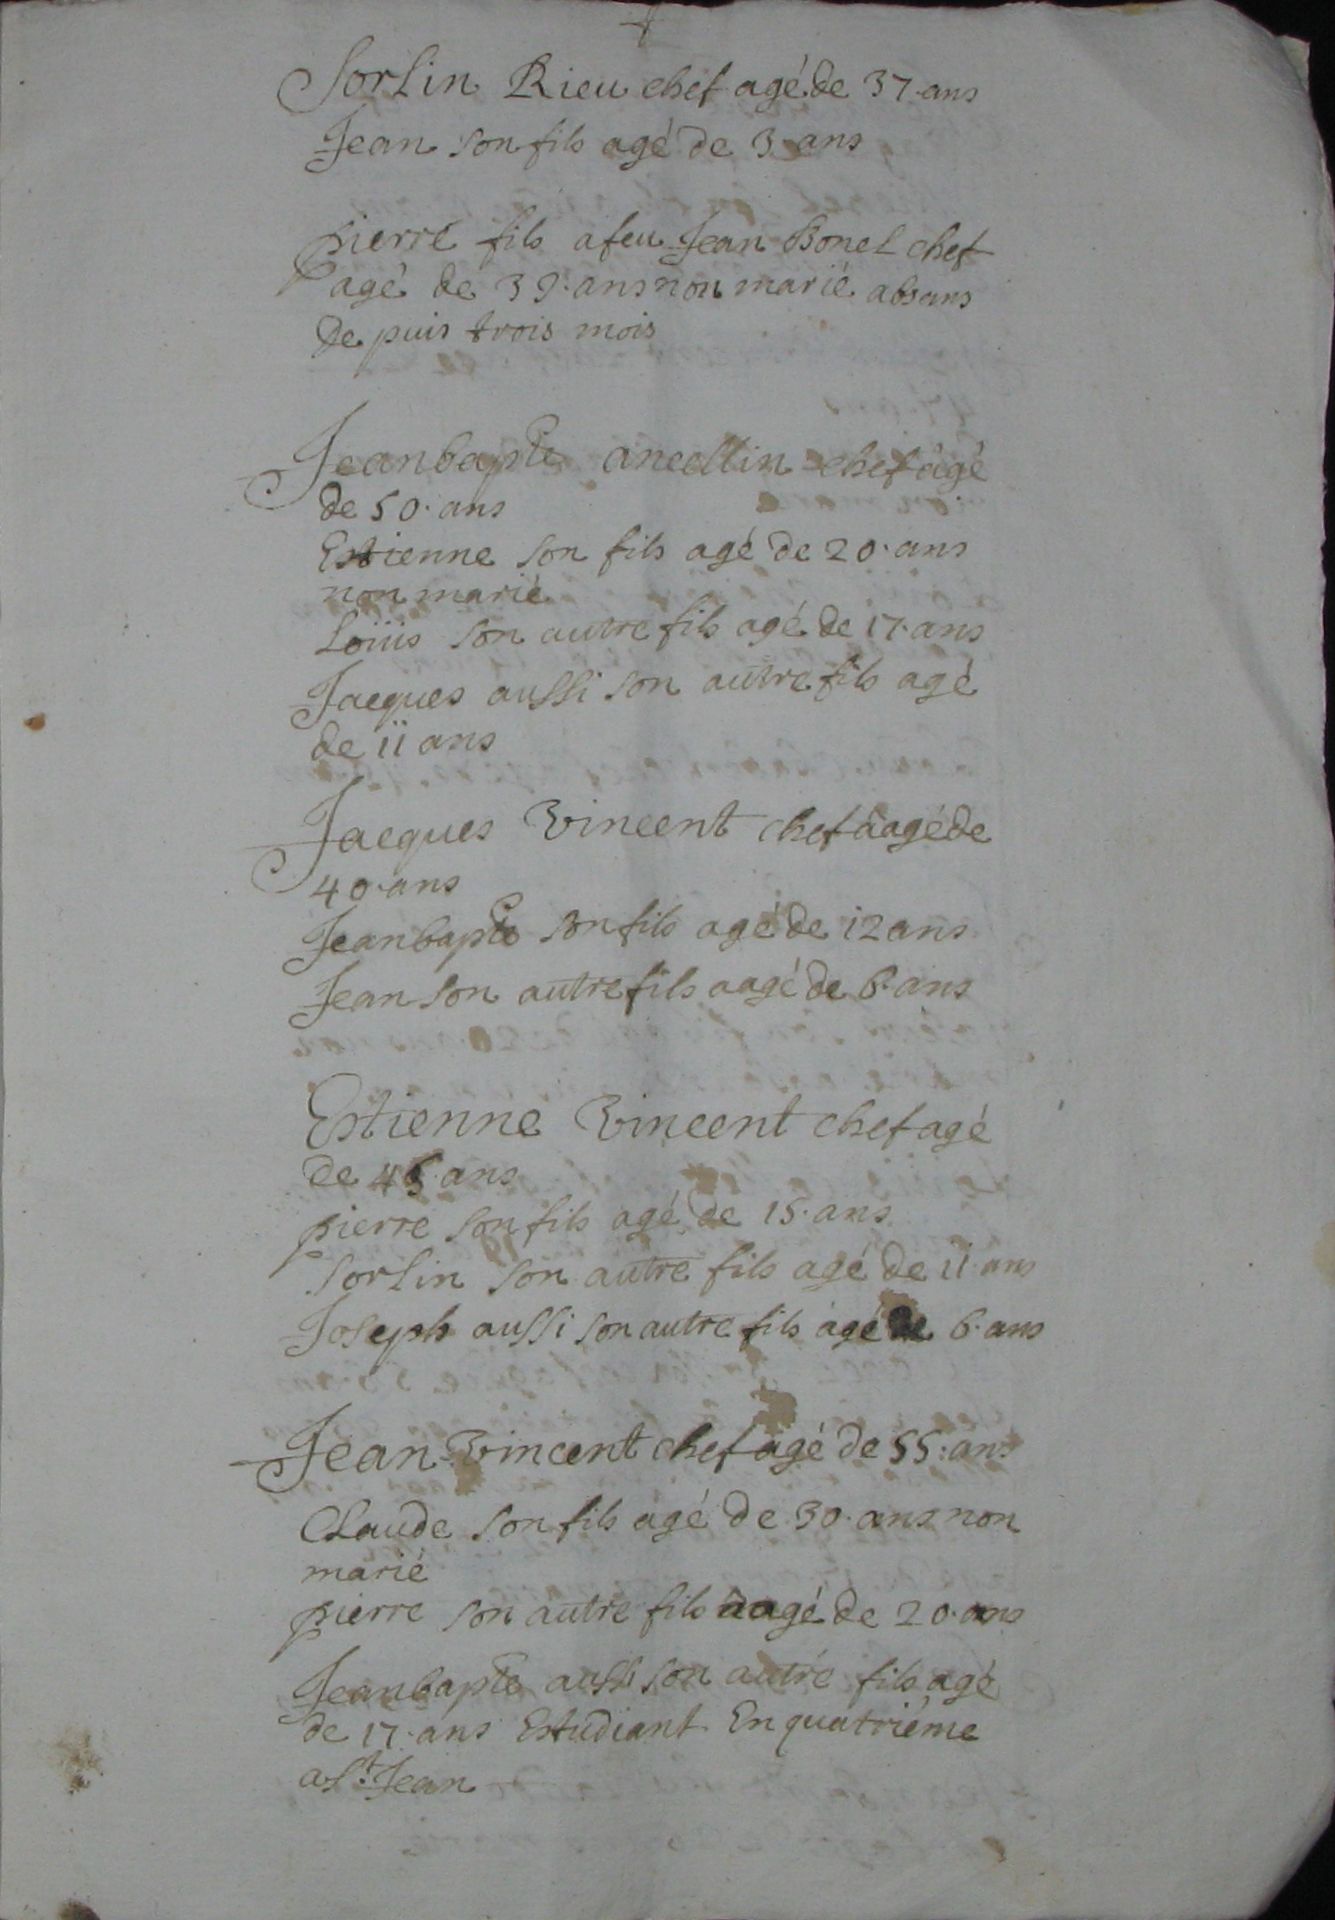 Sorlin Rieu chef agé de 37 ans
Jean son fils agé de 3 ans
pierre fils a feu Jean Bonel chef
agé de 39 ans non marié absans
de puis trois mois
Jean bapte ancellin chef agé
de 50 ans
Estienne son fils agé de 20 ans
non marié
Loüis son autre fils agé de 17 ans
Jacques aussi son autre fils agé
de 11 ans
Jacques Vincent chef aagé de
40 ans
Jean bapte son fils agé de 12 ans
Jean son autre fils aagé de 6 ans
Estienne Vincent chef agé
de ans
pierre son fils agé de 15 ans
Sorlin son autre fils agé de 11 ans
Joseph aussi son autre fils agé de 6 ans
Jean Vincent chef agé de 55 ans
Claude son fils agé de 30 ans non
marié
pierre son autre fils aagé de 20 ans
Jean bapte aussi son autre fils agé
de 17 ans Estudiant En quatriéme
a St Jean